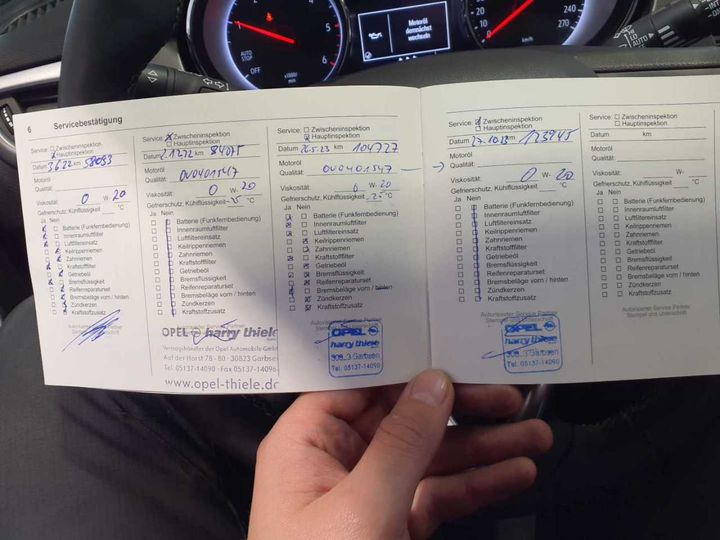 1
5
6
AUTO
STOP
OFF
x1000/
min
Motoröl
demnächst
wechseln
30
0
km/h
240
270
HI
LO
INT
AUTO
OFF
6 Servicebestätigung
Service: Zwischeninspektion
Hauptinspektion
Datum 3.6.22 km 58093
Motoröl
Qualität:
Viskosität: 0 W- 20
Gefrierschutz, Kühlflüssigkeit: °C
Ja Nein
Batterie (Funkfernbedienung)
Innenraumluftfilter
Luftfiltereinsatz
Keilrippenriemen
Zahnriemen
Kraftstofffilter
Getriebeöl
Bremsflüssigkeit
Reifenreparaturset
Bremsbeläge vorn / hinten
Zündkerzen
Kraftstoffzusatz
Service: Zwischeninspektion
Hauptinspektion
Datum 2.12.22 km 84075
Motoröl
Qualität: OV0401547
Viskosität: 0 W- 20
Gefrierschutz, Kühlflüssigkeit °C
Ja Nein
Batterie (Funkfernbedienung)
Innenraumluftfilter
Luftfiltereinsatz
Keilrippenriemen
Zahnriemen
Kraftstofffilter
Getriebeöl
Bremsflüssigkeit
Reifenreparaturset
Bremsbeläge vorn / hinten
Zündkerzen
Kraftstoffzusatz
OPEL harry thiele
Vertragshändler der Opel Automobile GmbH
Auf der Horst 78 - 80 · 30823 Garbsen
Tel. 05137-14090 · Fax 05137-14096
www.opel-thiele.de
Service: Zwischeninspektion
Hauptinspektion
Datum 26.5.23 km 104727
Motoröl
Qualität: OV0401547
Viskosität: 0 W- 20
Gefrierschutz, Kühlflüssigkeit -25 °C
Ja Nein
Batterie (Funkfernbedienung)
Innenraumluftfilter
Luftfiltereinsatz
Keilrippenriemen
Zahnriemen
Kraftstofffilter
Getriebeöl
Bremsflüssigkeit
Reifenreparaturset
Bremsbeläge vorn / hinten
Zündkerzen
Kraftstoffzusatz
Autorisierter Service Partner
OPEL
harry thiele
Garbsen
Tel. 05137-14090
Service: Zwischeninspektion
Hauptinspektion
Datum 27.10.23 km 123945
Motoröl
Qualität:
Viskosität: 0 W- 20
Gefrierschutz, Kühlflüssigkeit: °C
Ja Nein
Batterie (Funkfernbedienung)
Innenraumluftfilter
Luftfiltereinsatz
Keilrippenriemen
Zahnriemen
Kraftstofffilter
Getriebeöl
Bremsflüssigkeit
Reifenreparaturset
Bremsbeläge vorn / hinten
Zündkerzen
Kraftstoffzusatz
Autorisierter Service Partner
OPEL
harry thiele
Garbsen
Tel. 05137-14090
Service: Zwischeninspektion
Hauptinspektion
Datum km
Motoröl
Qualität:
Viskosität: W-
Gefrierschutz, Kühlflüssigkeit: °C
Ja Nein
Batterie (Funkfernbedienung)
Innenraumluftfilter
Luftfiltereinsatz
Keilrippenriemen
Zahnriemen
Kraftstofffilter
Getriebeöl
Bremsflüssigkeit
Reifenreparaturset
Bremsbeläge vorn / hinten
Zündkerzen
Kraftstoffzusatz
Autorisierter Service Partner
Stempel und Unterschrift